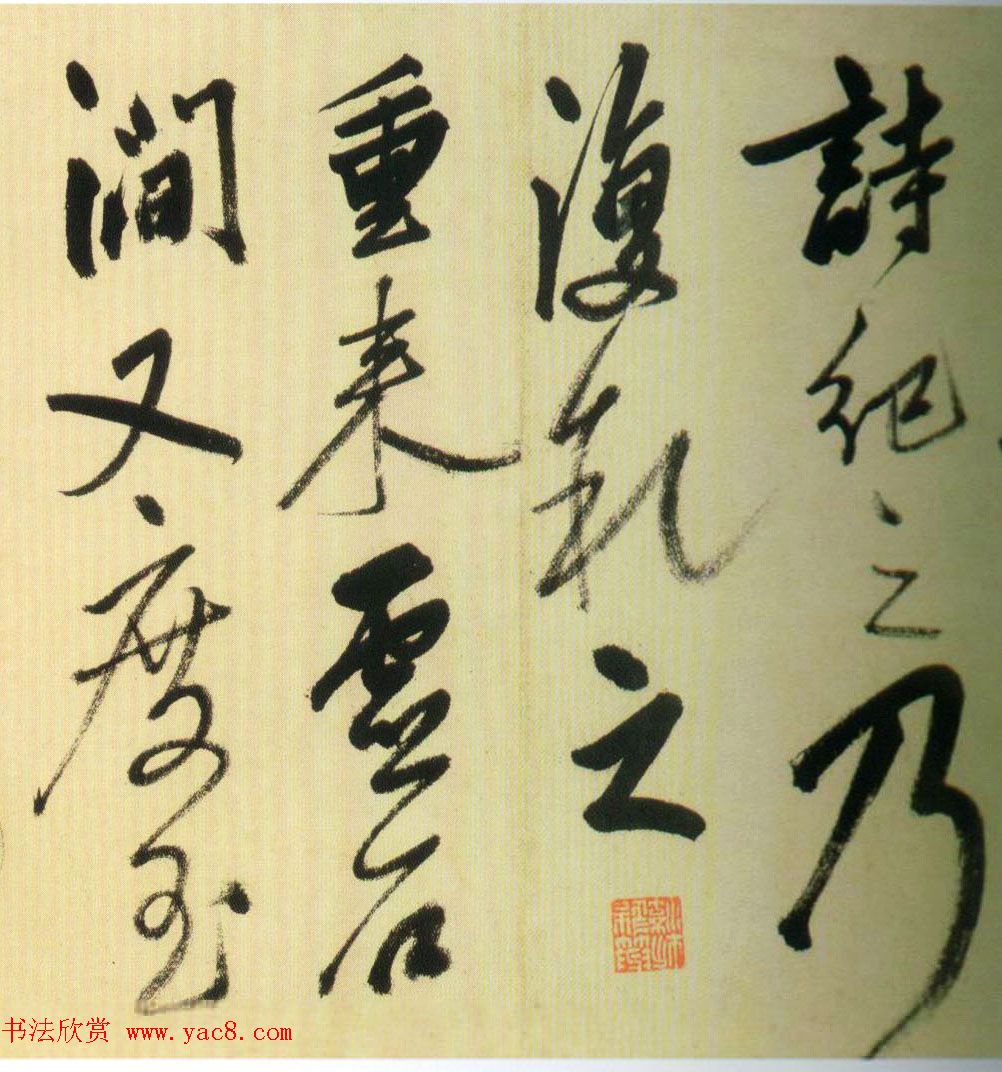 詩紀之乃
復之
重来雲石
澗又度玉
书法欣赏 www.yac8.com